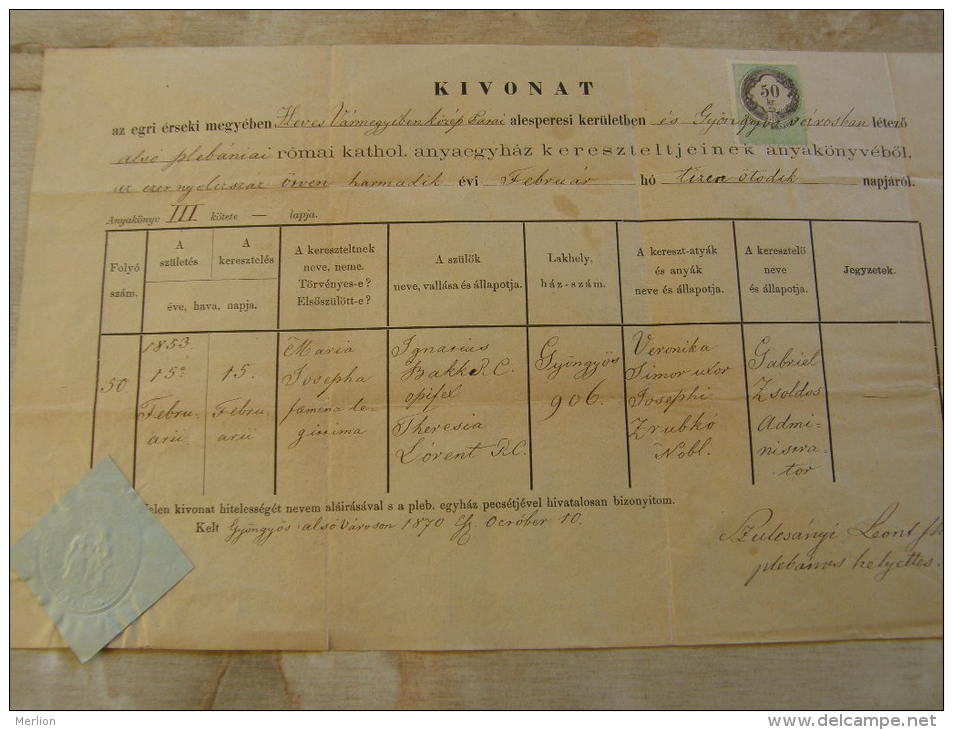 KIVONAT
50
kr.
az egri érseki megyében Heves Vármegyében Közép Parai alesperesi kerületben és Gyöngyös városban létező
alsó plebániai római kathol. anyaegyház kereszteltjeinek anyakönyvéből,
az ezernyolczszáz ötven harmadik évi Február hó tizen ötödik napjáról.
Anyakönyv III kötete — lapja.
Folyó szám.
A születés
A keresztelés
éve, hava, napja.
A kereszteltnek
neve, neme.
Törvényes-e?
Elsőszülött-e?
A szülők
neve, vallása és állapotja.
Lakhely,
ház-szám.
A kereszt-atyák
és anyák
neve és állapotja.
A keresztelő
neve
és állapotja.
Jegyzetek.
50
1853.
15a
Febru-
arii
15.
Febru-
arii
Maria
Josepha
femina le-
gitima
Ignatius
Bakk R.C.
opifex
Theresia
Lórent R.C.
Gyöngyös
906.
Veronika
Simor uxor
Josephi
Zrubkó
Nobl.
Gabriel
Zsoldos
Admi-
nistra-
tor
elen kivonat hitelességét nevem aláirásával s a pleb. egyház pecsétjével hivatalosan bizonyitom.
Kelt Gyöngyös alsóvároson 1870 October 10.
Leont
plebános helyettes.
Merlion
www.delcampe.net